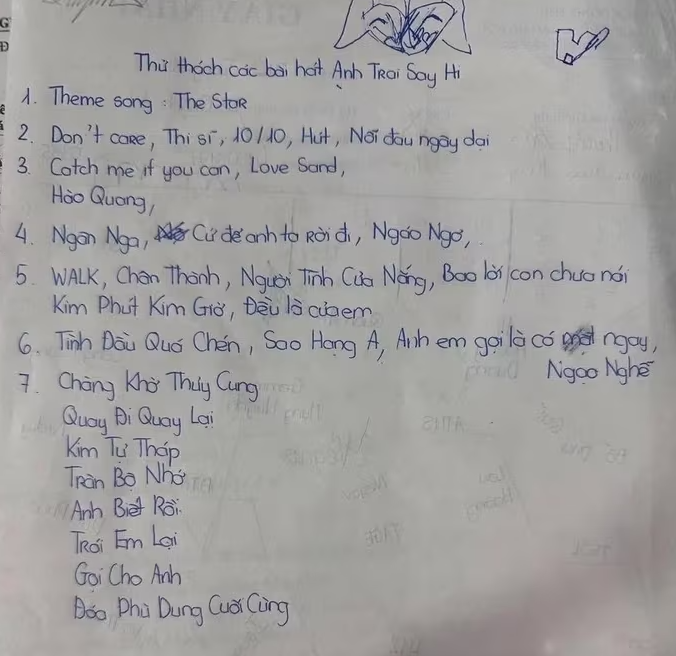 Thử thách các bài hát Anh Trai Say Hi
1. Theme song : The Star
2. Don't care, Thi sĩ, 10/10, Hút, Nỗi đau ngây dại
3. Catch me if you can, Love Sand,
Hào Quang,
4. Ngân Nga, Cứ để anh ta rời đi, Ngáo Ngơ,
5. WALK, Chân Thành, Người Tình Của Nắng, Bao lời con chưa nói
Kim Phút Kim Giờ, Đều là của em
6. Tình Đầu Quá Chén, Sao Hạng A, Anh em gọi là có mặt ngay,
Ngạo Nghễ
7. Chàng Khờ Thủy Cung
Quay Đi Quay Lại
Kim Tự Tháp
Tràn Bộ Nhớ
Anh Biết Rồi
Trói Em Lại
Gọi Cho Anh
Đóa Phù Dung Cuối Cùng